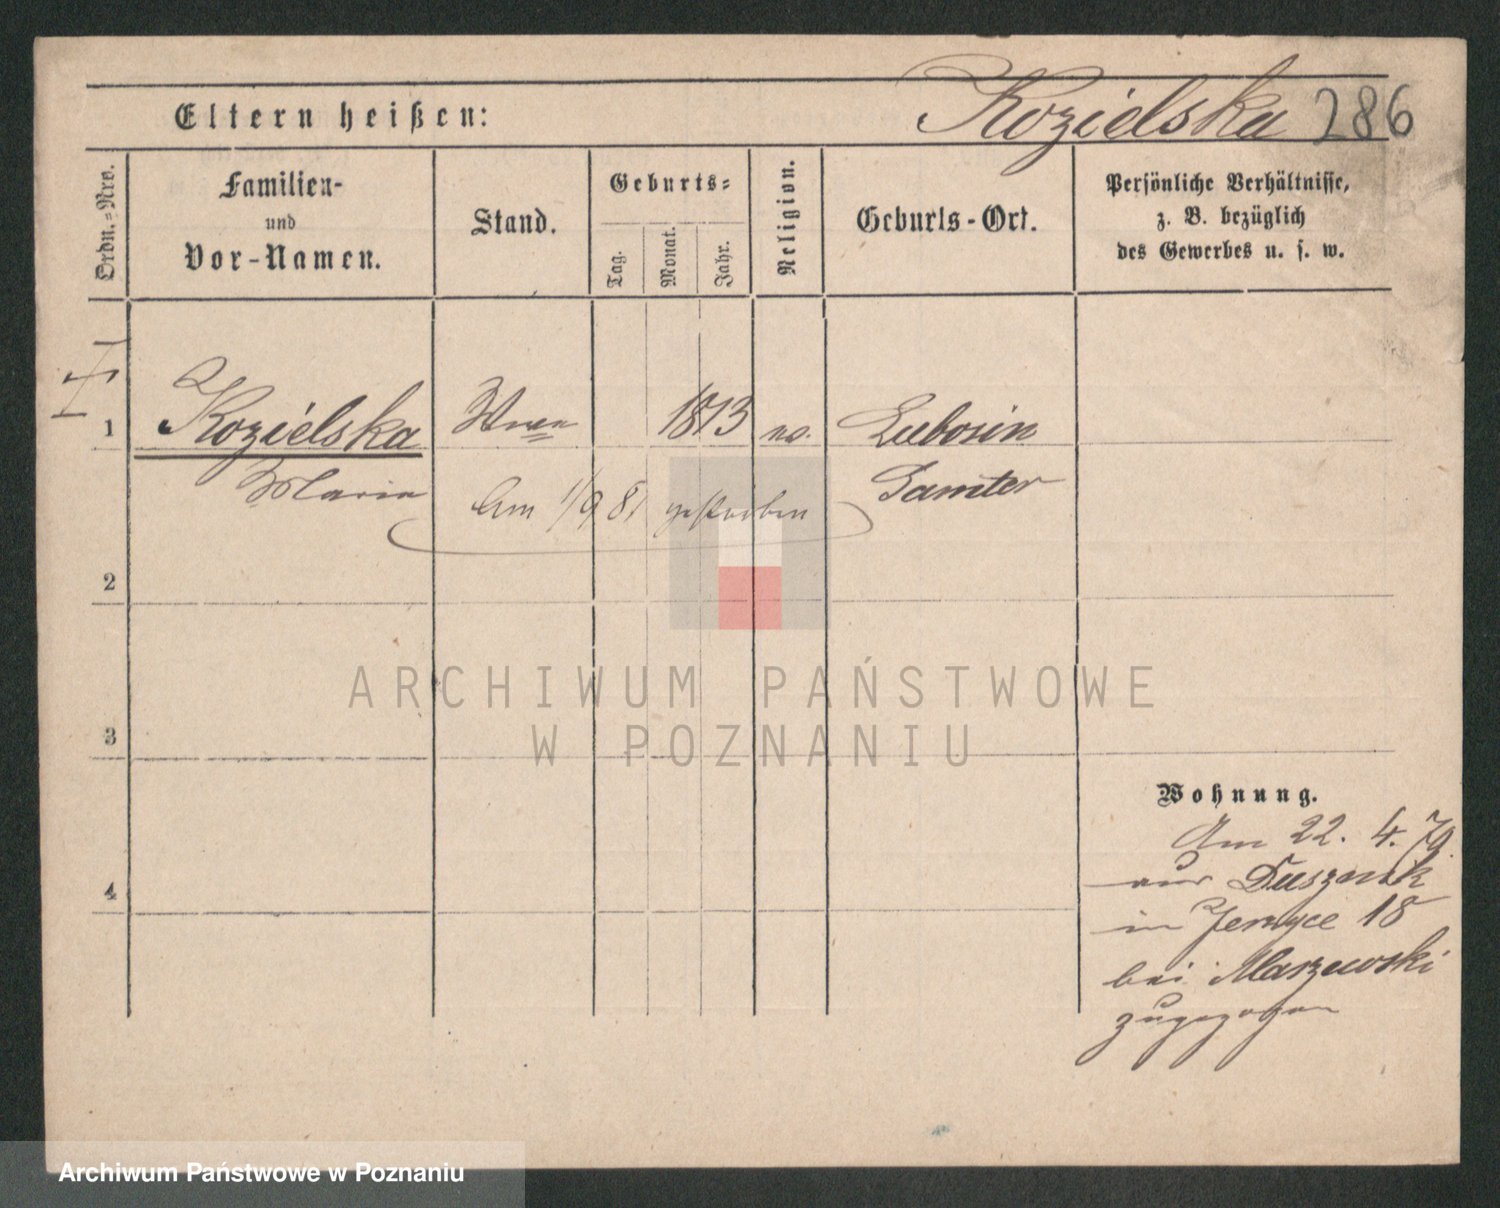 Eltern heißen:
Kozielska 286
Ordn.-Nro.
Familien-
und
Vor-Namen.
Stand.
Geburts-
Tag.
Monat.
Jahr.
Religion.
Geburts-Ort.
Persönliche Verhältnisse,
z. B. bezüglich
des Gewerbes u. s. w.
1 Kozielska 1813 Lubosin
Maria Samter
Am 1/9 81 gestorben
2
3
4
Wohnung.
Am 22. 4. 79
aus Dusznik
in Jerzyce 18
bei Marzewski
zugezogen
ARCHIWUM PAŃSTWOWE
W POZNANIU
Archiwum Państwowe w Poznaniu